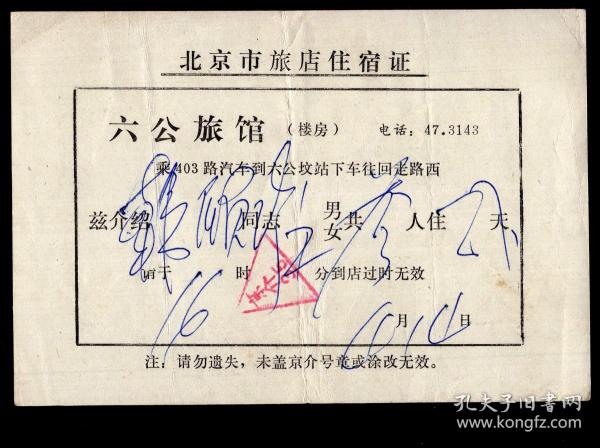 北京市旅店住宿证
六公旅馆 （楼房） 电话：47.3143
乘403路汽车到六公坟站下车往回走路西
兹介绍 同志 男女共 人住 天
请于 16 时 分到店过时无效
10月14日
注：请勿遗失，未盖京介号章或涂改无效。
孔夫子旧书网
www.kongfz.com